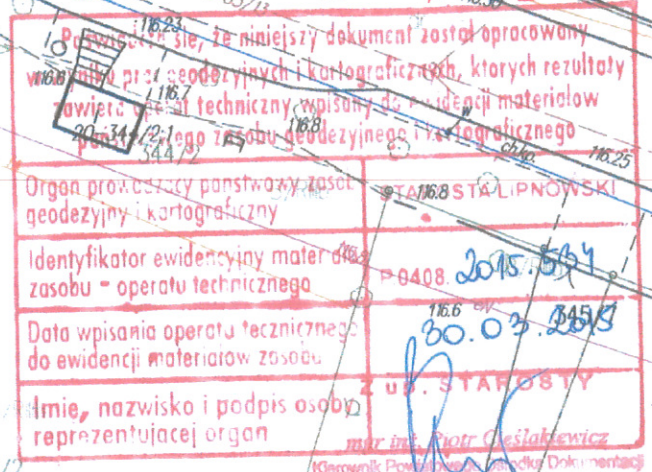 116.23
Poświadcza się, że niniejszy dokument został opracowany
w wyniku prac geodezyjnych i kartograficznych, ktorych rezultaty
116.6
116.7
zawiera operat techniczny wpisany do ewidencji materiałow
116.8
w
państwowego zasobu geodezyjnego i kartograficznego
344/2
chko.
116.25
Organ prowadzący panstwowy zasob
geodezyjny i kartograficzny
STAROSTA LIPNOWSKI
116.8
Identyfikator ewidencyjny materiału
zasobu - operatu technicznego
P.0408. 2015.
116.6
Data wpisania operatu tecznicznego
do ewidencji materiałow zasobu
30.03.2015
Imie, nazwisko i podpis osoby
reprezentujacej organ
Z up. STAROSTY
mgr inż. Piotr Cieślakiewicz
Kierownik Powiatowego Ośrodka Dokumentacji